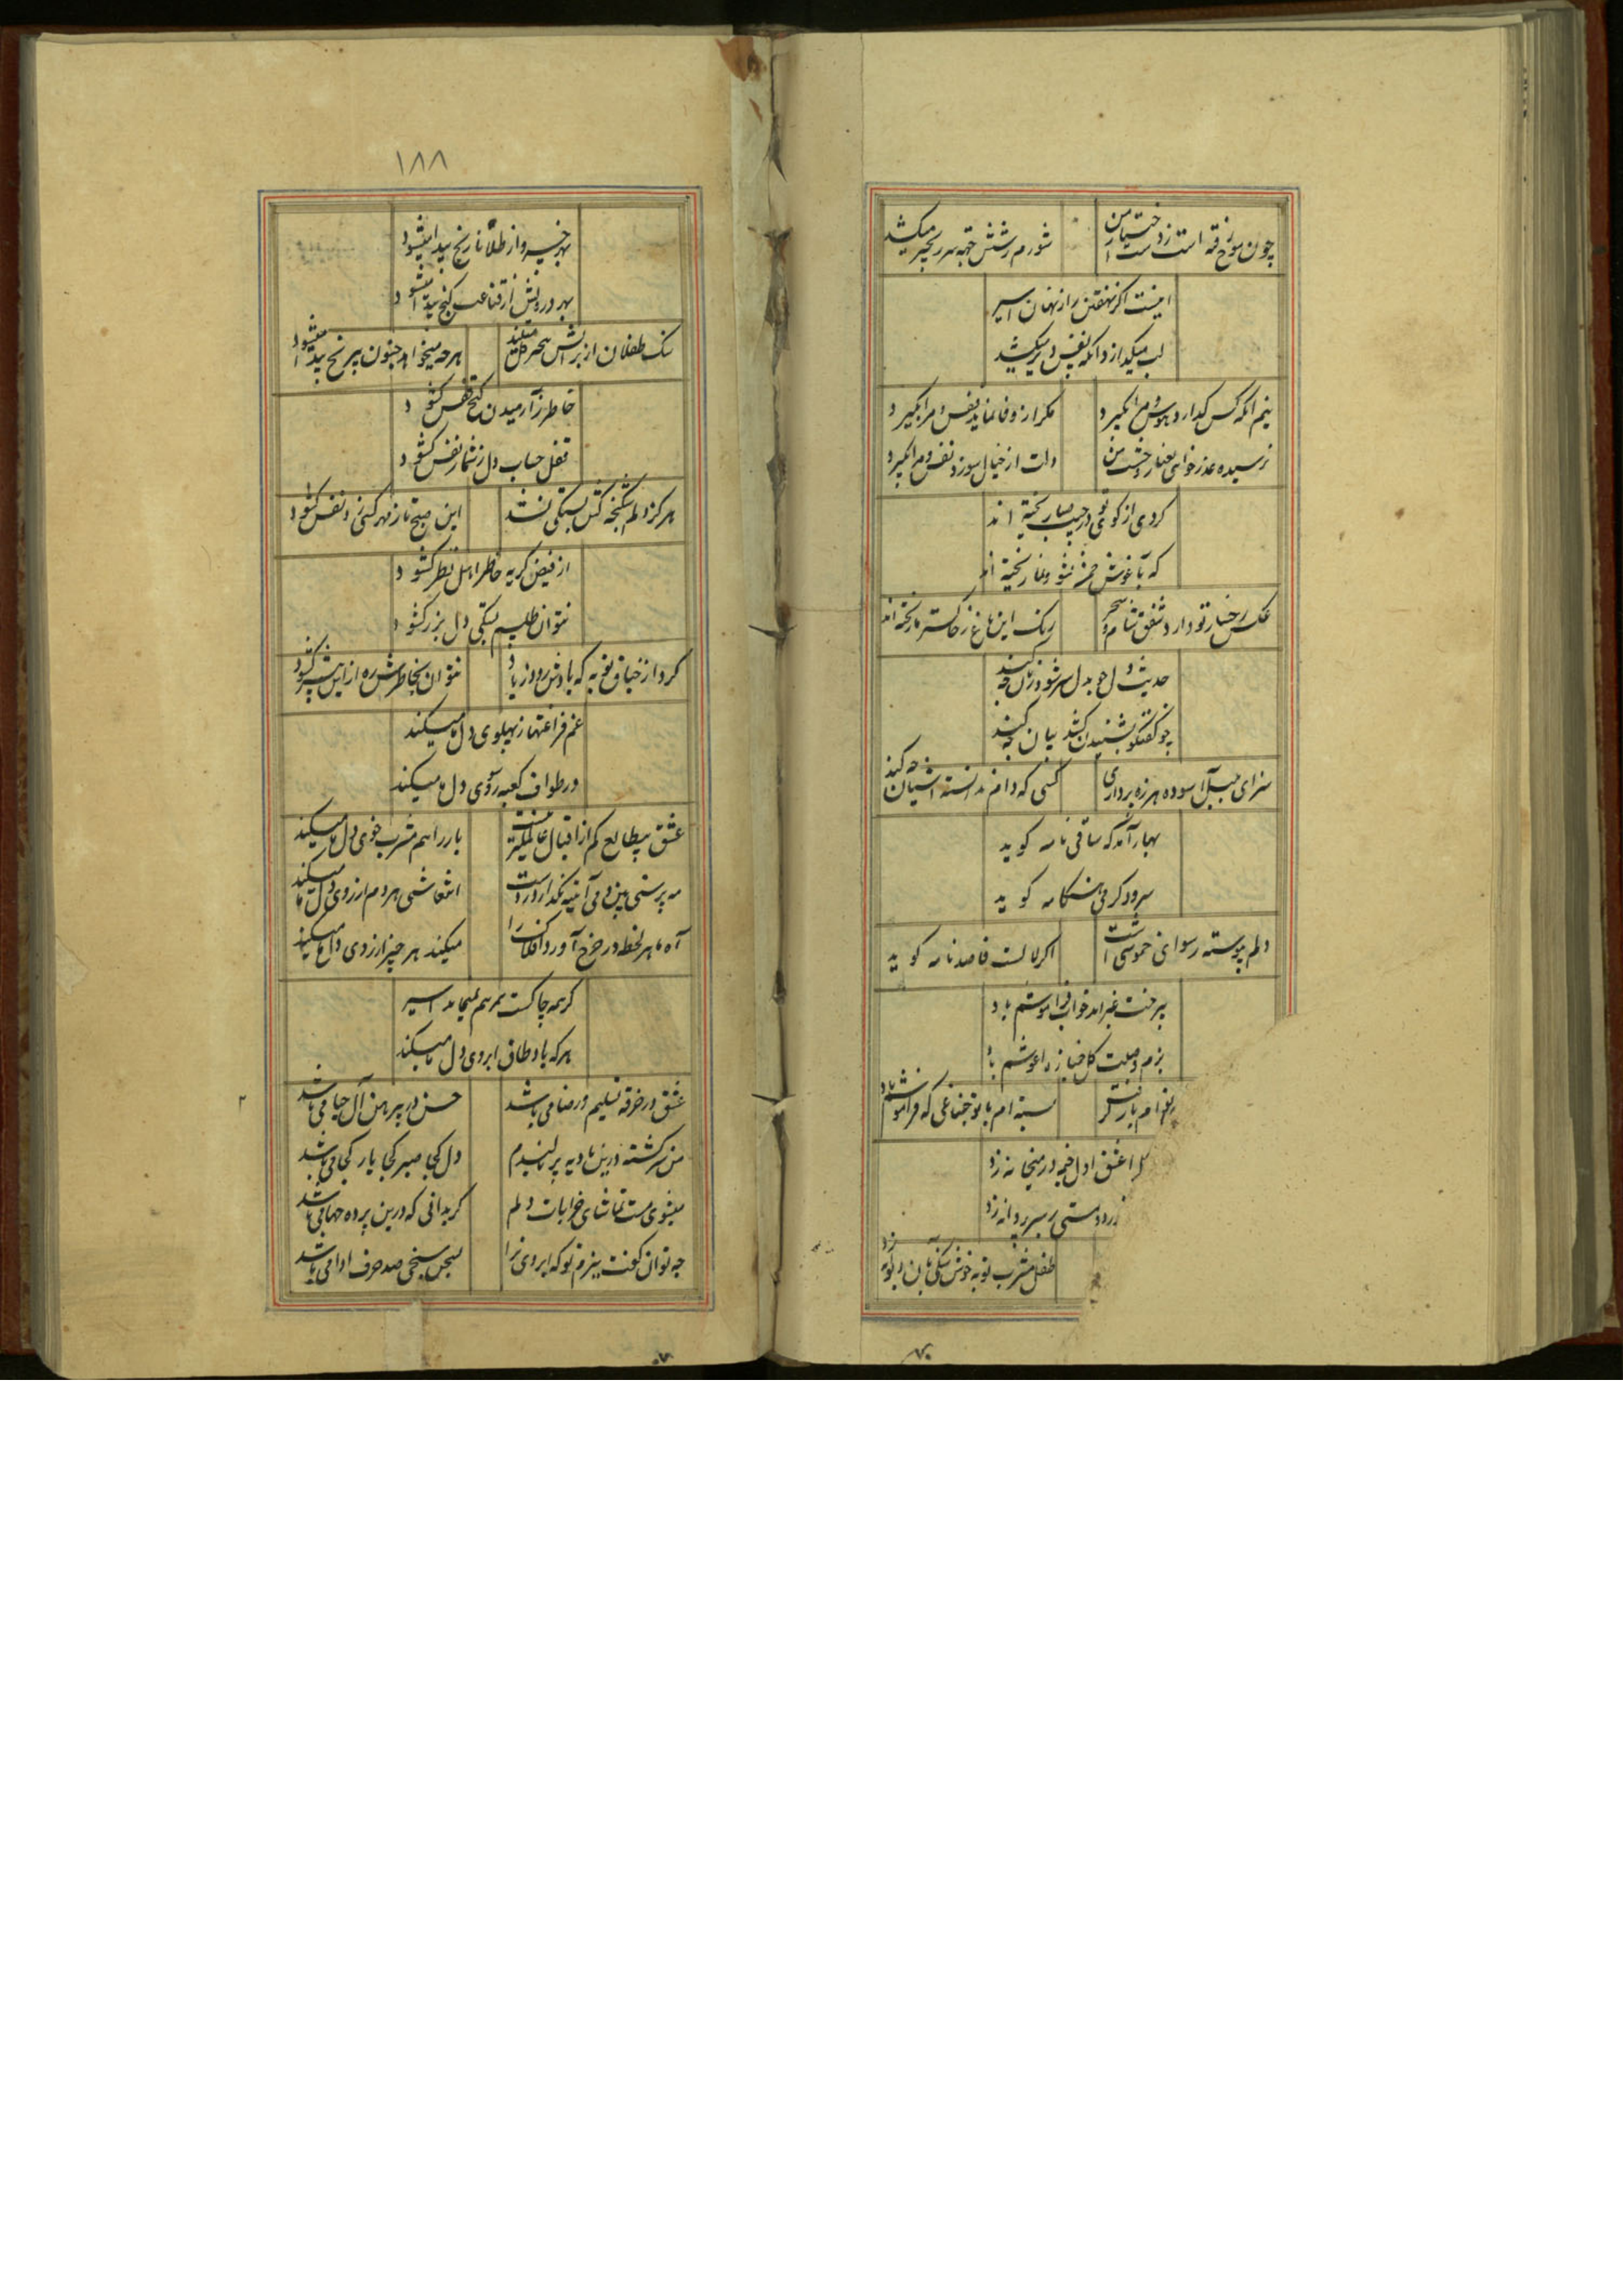 چون سوخته است ز دست من
شورم ز شش جهة سر زنجیر میکشد
اینست اگر نهفتن راز نهان اسیر
لب میگدازد آنکه نفس دیر میکشد
بنیم آنکه کس کدارد هوس و مرا نگیرد
مگر از وفا نماید نفس و مرا نگیرد
نرسیده عذر خواهی بغبار وحشت من
دلت از خیال سوزد نفس و مرا نگیرد
گردی از کوی تو در جیب صبا ریخته اند
که بآغوش نفا ریخته اند
عکس رخسار تو دارد شفق شام و سحر
رنک این باغ ز خاکستر ما ریخته اند
حدیث دل چو بدل سر شود زبان چه کند
چو گفتگو بشنیدن کشد بیان چه کند
سزای بلبل آسوده هرزه پردازی
کسی که دام ندانسته آشیان چه کند
بهار آمد که ساقی نامه گوید
سرود گرمی هنگامه گوید
دلم پیوسته رسوای خموشی است
اگر لالست قاصد نامه گوید
بیرخت غیر اند خواب فراموشم باد
بزم وصلت گل خمیازه آغوشم باد
بسته ام با تو جناغی که فراموشم باد
عشق اول خیمه در میخانه زد
دستی بر سر پروانه زد
طفل مشرب توبه خوش سنگی بان دیوانه زد
۱۸۸
بهر خسرو از طلا نارنج پیدا میشود
بهر درویش از قناعت گنج پیدا میشود
سنک طفلان از برایش سحر گل میکند
هر چه میخواهد جنون بیرنج پیدا میشود
خاطر ز آرمیدن کنج قفس گشود
قفل حساب دل ز شمار نفس گشود
هرگز دلم شکنجه کش بستگی نشد
این صبح تاز مهر کسی زد نفس گشود
از فیض گریه خاطر اهل نظر گشود
نتوان طلسم بستگی دل بزر گشود
کرد از خیاق توبه که یادش رود ز یاد
نتوان بخاطرش ره ازین بیشتر گشود
غم فراغتها ز پهلوی دل ما میکند
در طواف کعبه رو سوی دل ما میکند
عشق بیطالع کم از اقبال عالمگیر نیست
یار را هم مشرب خوی دل ما میکند
مه پرستی بین و بی آئینه نگذارد ز دست
انتعاشی هر دم از روی دل ما میکند
آه ما هر لحظه در چرخ آورد افلاک را
میکند هر چیز ارزوی دل ما میکند
گر همه چاکست مرهم مینماید اسیر
هر که یاد طاق ابروی دل ما میکند
عشق در خرقه تسلیم و رضا می باشد
حسن در پیرهن آل حیا می باشد
من سرگشته درین بادیه پر مانندم
دل کجا صبر کجا یار کجا می باشد
میشوی مست تماشای خرابات دلم
گر بدانی که درین پرده چها می باشد
چه توان گفت ببزم تو که ابروی ترا
بسخن سنجی صد حرف ادا می باشد
۲